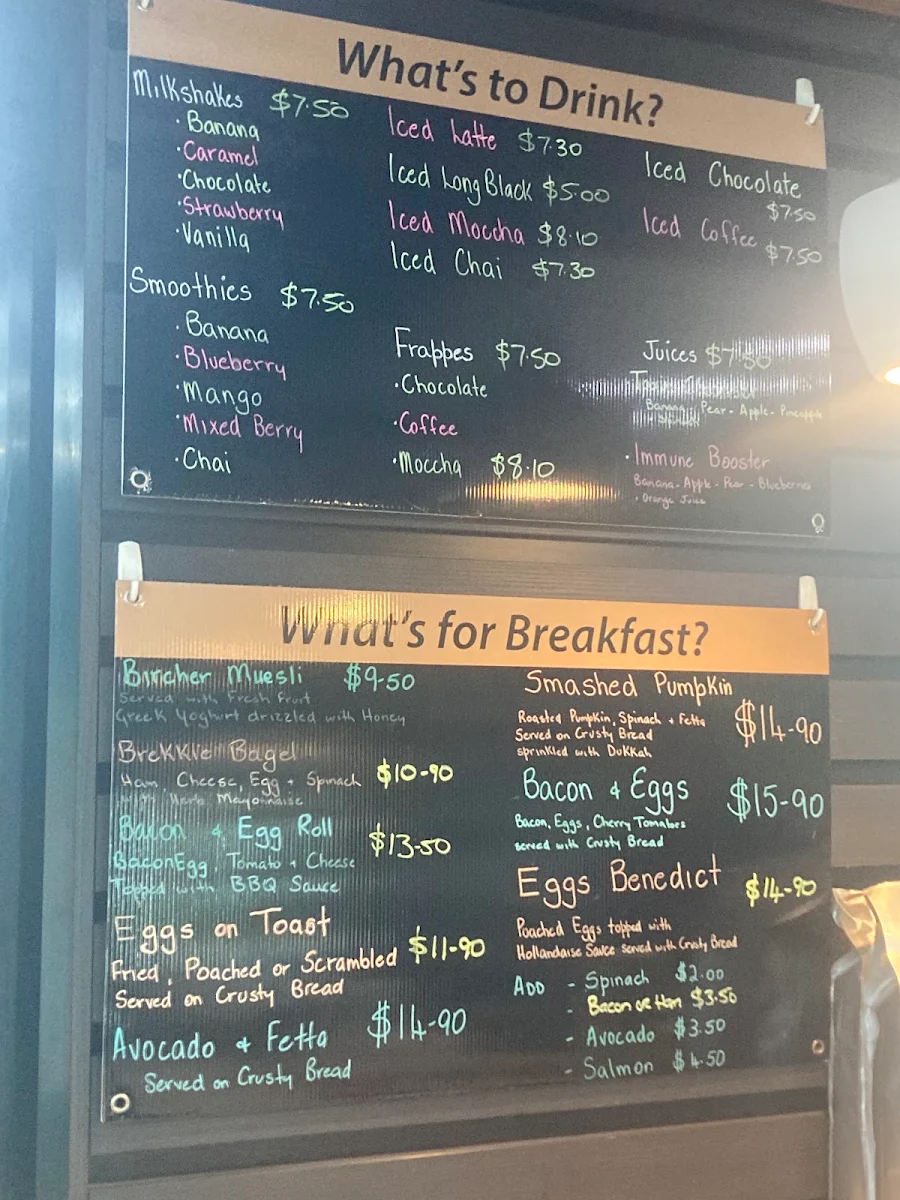 What's to Drink?
Milkshakes $7.50
· Banana
· Caramel
· Chocolate
· Strawberry
· Vanilla
Smoothies $7.50
· Banana
· Blueberry
· Mango
· Mixed Berry
· Chai
Iced Latte $7.30
Iced Long Black $5.00
Iced Moccha $8.10
Iced Chai $7.30
Frappes $7.50
· Chocolate
· Coffee
· Moccha $8.10
Iced Chocolate
$7.50
Iced Coffee
$7.50
Juices $7.50
Banana - Pear - Apple - Pineapple
· Immune Booster
Banana - Apple - Pear - Blueberries
· Orange Juice
What's for Breakfast?
Bircher Muesli $9-50
Served with Fresh Fruit
Greek Yoghurt drizzled with Honey
Brekkie Bagel
Ham, Cheese, Egg + Spinach $10-90
with Herb Mayonnaise
Bacon & Egg Roll $13-50
Bacon Egg, Tomato + Cheese
Topped with BBQ Sauce
Eggs on Toast
Fried, Poached or Scrambled $11-90
Served on Crusty Bread
Avocado & Fetta $14-90
Served on Crusty Bread
Smashed Pumpkin
Roasted Pumpkin, Spinach + Fetta $14-90
Served on Crusty Bread
sprinkled with Dukkah
Bacon & Eggs $15-90
Bacon, Eggs, Cherry Tomatoes
served with Crusty Bread
Eggs Benedict $14-90
Poached Eggs topped with
Hollandaise Sauce served with Crusty Bread
ADD - Spinach $2.00
- Bacon or Ham $3.50
- Avocado $3.50
- Salmon $4.50